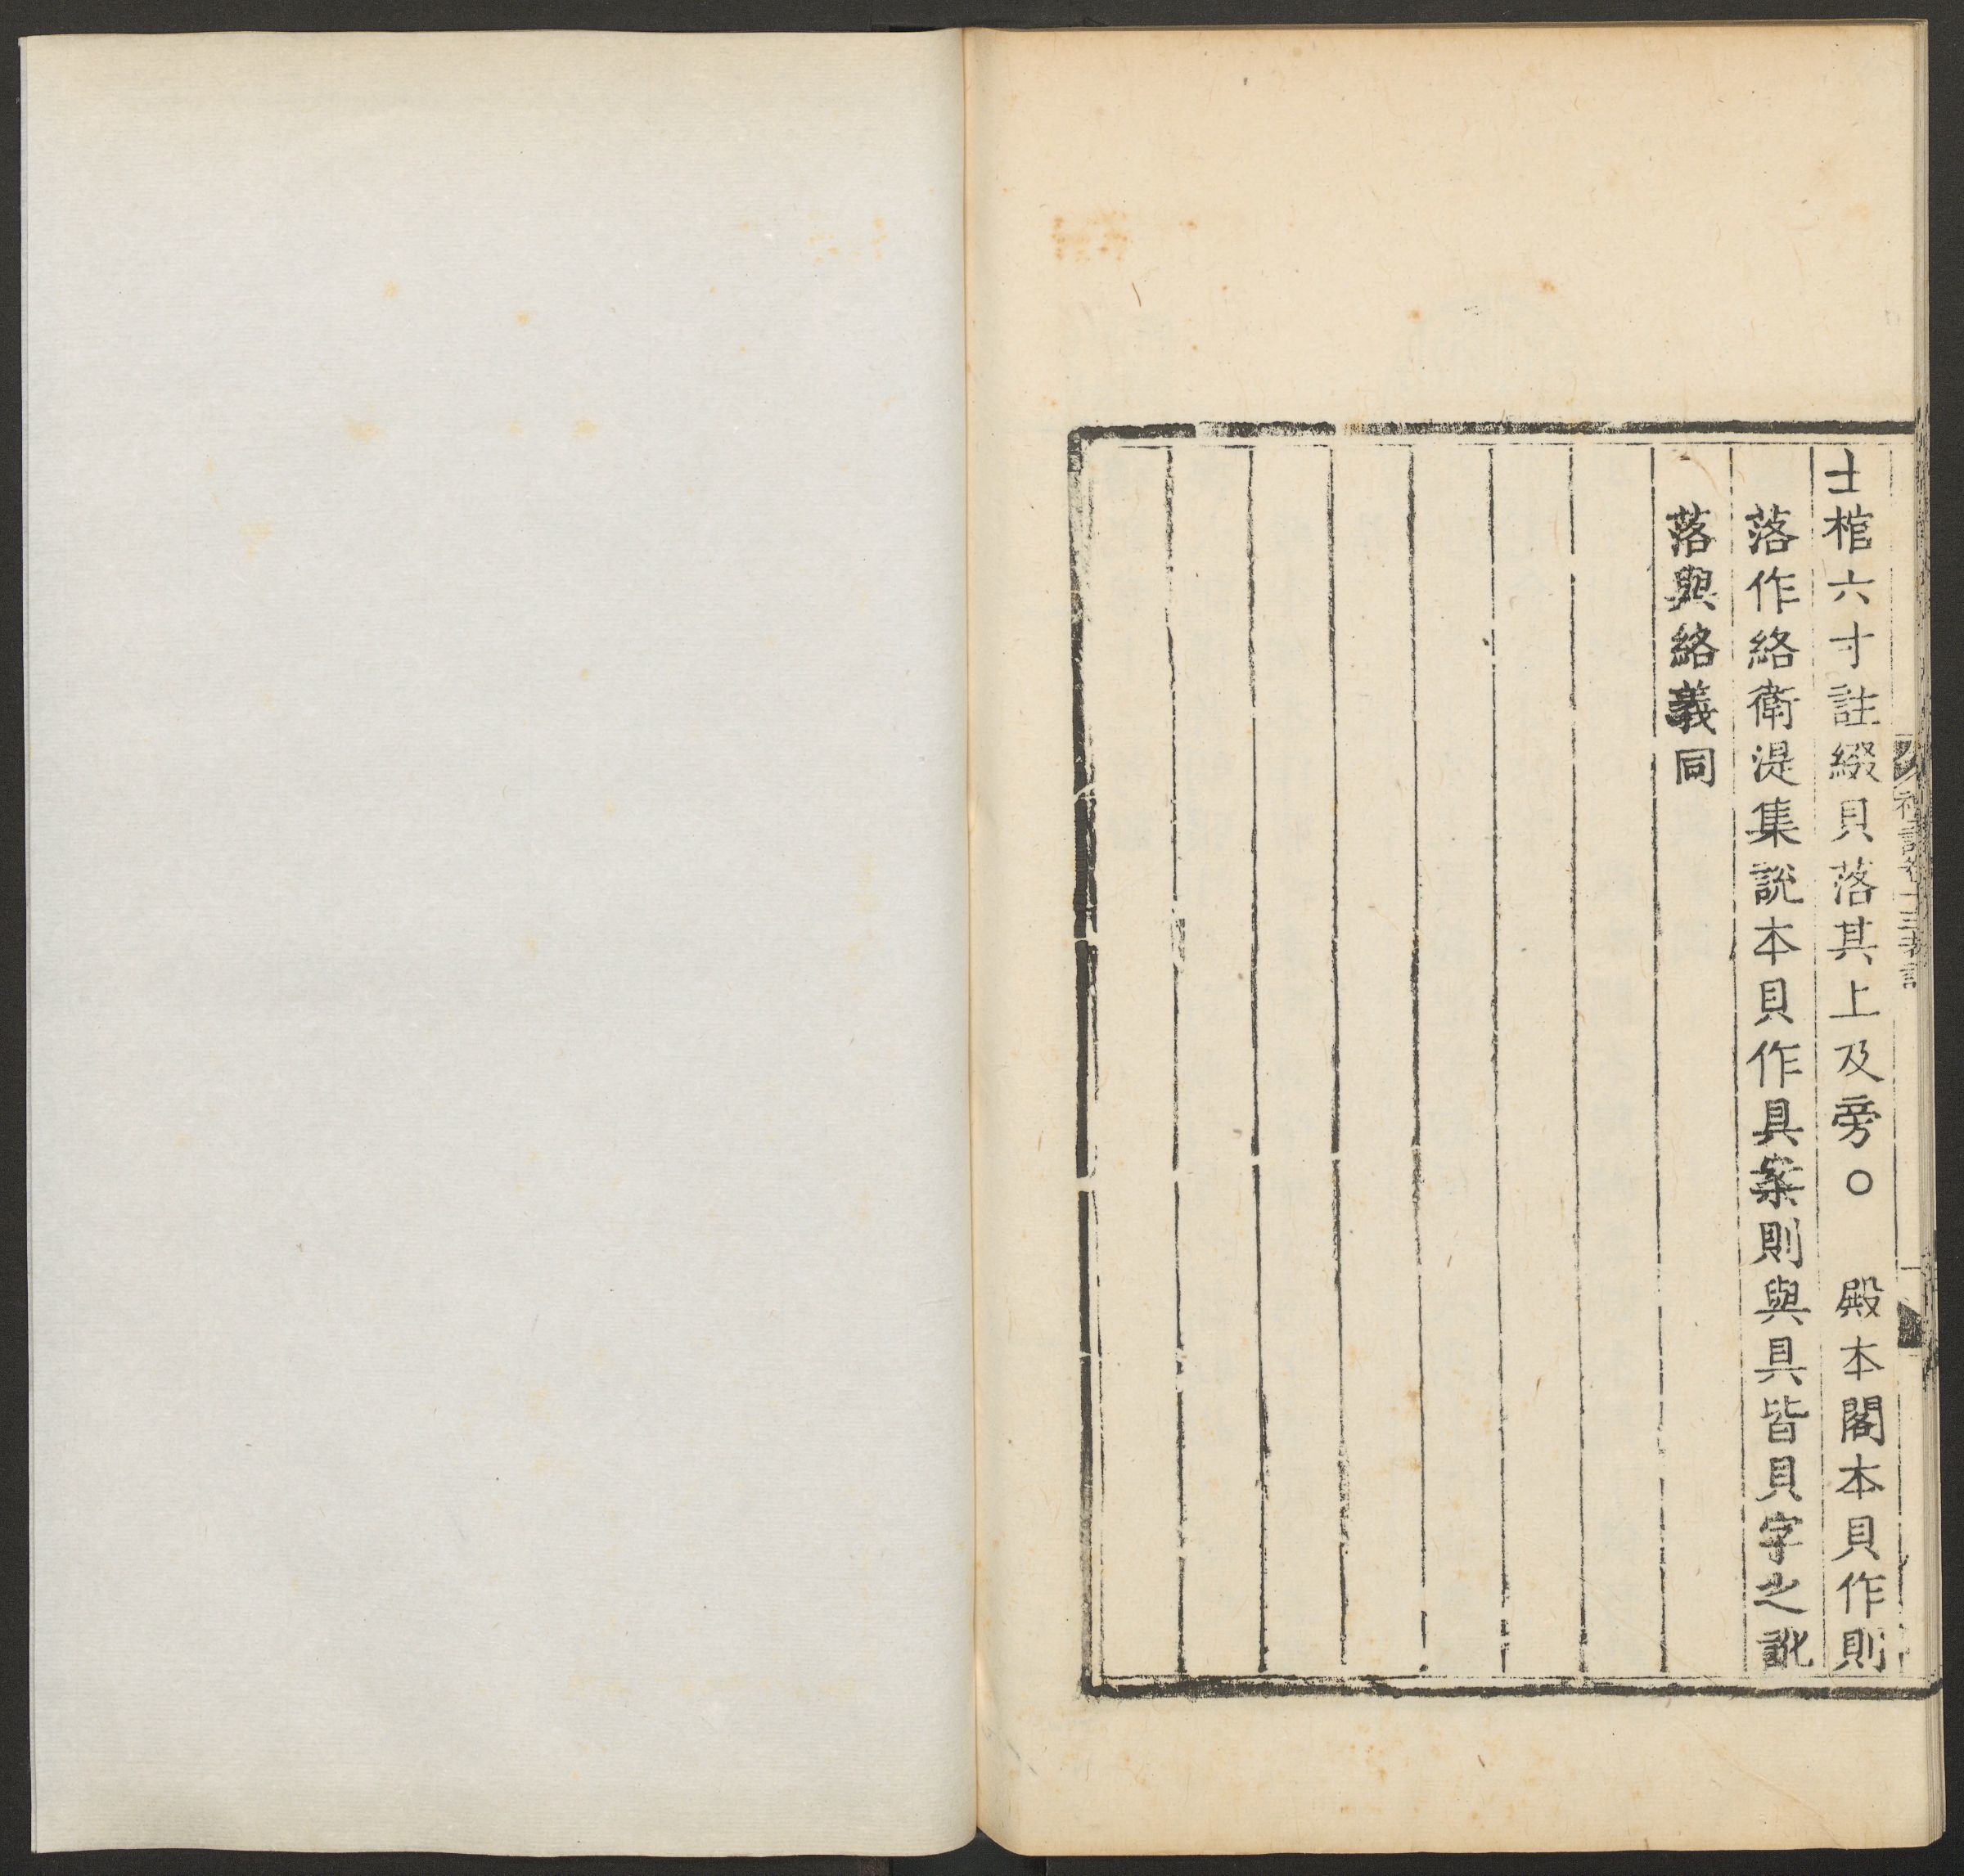 士棺六寸註綴貝落其上及旁○　殿本閣本貝作則
落作絡衛湜集說本貝作具案則與具皆貝字之訛
落與絡義同
禮記卷十三考證